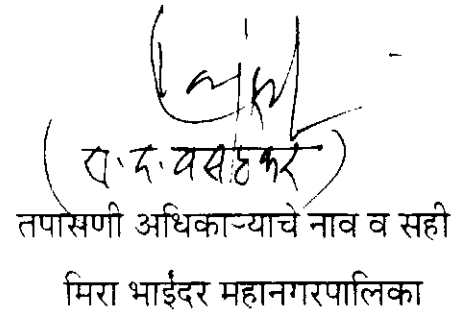 (व. द. वसईकर)
तपासणी अधिकाऱ्याचे नाव व सही
मिरा भाईंदर महानगरपालिका